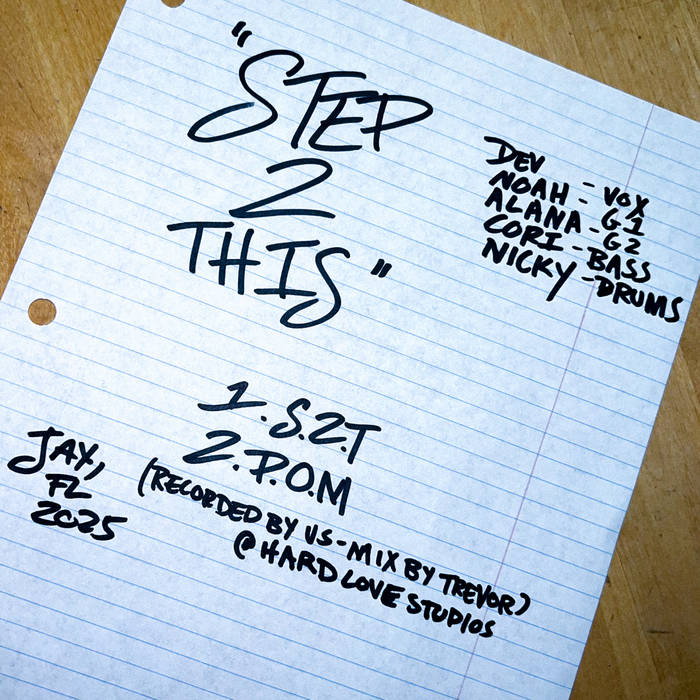 "STEP
2
THIS"
DEV - VOX
NOAH - G1
ALANA - G2
CORI - BASS
NICKY - DRUMS
1. S.2.T
2. P.O.M
(RECORDED BY US - MIX BY TREVOR)
@ HARD LOVE STUDIOS
JAY,
FL
2025